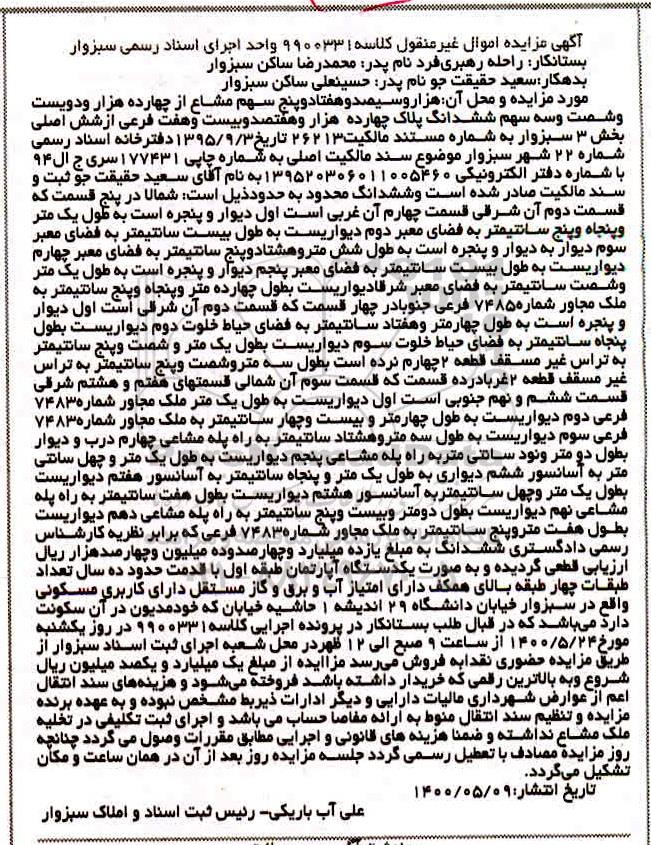 آگهی مزایده اموال غیرمنقول کلاسه۹۹۰۰۳۳۱ واحد اجرای اسناد رسمی سبزوار
بستانکار: راحله رهبری‌فرد نام پدر: محمدرضا ساکن سبزوار
بدهکار:سعید حقیقت جو نام پدر: حسینعلی ساکن سبزوار
مورد مزایده و محل آن:هزاروسیصدوهفتادوپنج سهم مشاع از چهارده هزار ودویست
وشصت وسه سهم ششدانگ پلاک چهارده هزار وهفتصدوبیست وهفت فرعی ازشش اصلی
بخش ۳ سبزوار به شماره مستند مالکیت۲۶۲۱۳ تاریخ۱۳۹۵/۹/۳دفترخانه اسناد رسمی
شماره ۲۲ شهر سبزوار موضوع سند مالکیت اصلی به شماره چاپی ۱۷۷۴۳۱سری ج ال۹۴
با شماره دفتر الکترونیکی ۱۳۹۵۲۰۳۰۶۰۱۱۰۰۵۴۶۰به نام آقای سعید حقیقت جو ثبت و
سند مالکیت صادر شده است وششدانگ محدود به حدودذیل است: شمالا در پنج قسمت که
قسمت دوم آن شرقی قسمت چهارم آن غربی است اول دیوار و پنجره است به طول یک متر
وپنجاه وپنج سانتیمتر به فضای معبر دوم دیواریست به طول بیست سانتیمتر به فضای معبر
سوم دیوار به دیوار و پنجره است به طول شش متروهشتادوپنج سانتیمتر به فضای معبر چهارم
دیواریست به طول بیست سانتیمتر به فضای معبر پنجم دیوار و پنجره است به طول یک متر
وشصت سانتیمتر به فضای معبر شرقادیواریست بطول چهارده متر وپنجاه وپنج سانتیمتر به
ملک مجاور شماره۷۴۸۵ فرعی جنوبادر چهار قسمت که قسمت دوم آن شرقی است اول دیوار
و پنجره است به طول چهارمتر وهفتاد سانتیمتر به فضای حیاط خلوت دوم دیواریست بطول
پنجاه سانتیمتر به فضای حیاط خلوت سوم دیواریست بطول یک متر و شصت وپنج سانتیمتر
به تراس غیر مسقف قطعه ۲چهارم نرده است بطول سه متروشصت وپنج سانتیمتر به تراس
غیر مسقف قطعه ۲غربادرده قسمت که قسمت سوم آن شمالی قسمتهای هفتم و هشتم شرقی
قسمت ششم و نهم جنوبی است اول دیواریست به طول یک متر ملک مجاور شماره۷۴۸۳
فرعی دوم دیواریست به طول چهارمتر و بیست وچهار سانتیمتر به ملک مجاور شماره۷۴۸۳
فرعی سوم دیواریست به طول سه متروهشتاد سانتیمتر به راه پله مشاعی چهارم درب و دیوار
بطول دو متر ونود سانتی متربه راه پله مشاعی پنجم دیواریست به طول یک متر و چهل سانتی
متر به آسانسور ششم دیواری به طول یک متر و پنجاه سانتیمتر به آسانسور هفتم دیواریست
بطول یک متر وچهل سانتیمتربه آسانسور هشتم دیواریست بطول هفت سانتیمتر به راه پله
مشاعی نهم دیواریست بطول دومتر وبیست وپنج سانتیمتر به راه پله مشاعی دهم دیواریست
بطول هفت متروپنج سانتیمتر به ملک مجاور شماره۷۴۸۳ فرعی که برابر نظریه کارشناس
رسمی دادگستری ششدانگ به مبلغ یازده میلیارد وچهارصدوده میلیون وچهارصدهزار ریال
ارزیابی قطعی گردیده و به صورت یکدستگاه آپارتمان طبقه اول با قدمت حدود ده سال تعداد
طبقات چهار طبقه بالای همکف دارای امتیاز آب و برق و گاز مستقل دارای کاربری مسکونی
واقع در سبزوار خیابان دانشگاه ۲۹ اندیشه ۱ حاشیه خیابان که خودمدیون در آن سکونت
دارد می‌باشد که در قبال طلب بستانکار در پرونده اجرایی کلاسه۹۹۰۰۳۳۱ در روز یکشنبه
مورخ۱۴۰۰/۵/۲۴ از ساعت ۹ صبح الی ۱۲ ظهردر محل شعبه اجرای ثبت اسناد سبزوار از
طریق مزایده حضوری نقدابه فروش می‌رسد مزاایده از مبلغ یک میلیارد و یکصد میلیون ریال
شروع وبه بالاترین رقمی که خریدار داشته باشد فروخته می‌شود و هزینه‌های سند انتقال
اعم از عوارض شهرداری مالیات دارایی و دیگر ادارات ذیربط مشخص نبوده و به عهده برنده
مزایده و تنظیم سند انتقال منوط به ارائه مفاصا حساب می باشد و اجرای ثبت تکلیفی در تخلیه
ملک مشاع نداشته و ضمنا هزینه های قانونی و اجرایی مطابق مقررات وصول می گردد چنانچه
روز مزایده مصادف با تعطیل رسمی گردد جلسه مزایده روز بعد از آن در همان ساعت و مکان
تشکیل می‌گردد.
تاریخ انتشار:۱۴۰۰/۰۵/۰۹
علی آب باریکی- رئیس ثبت اسناد و املاک سبزوار